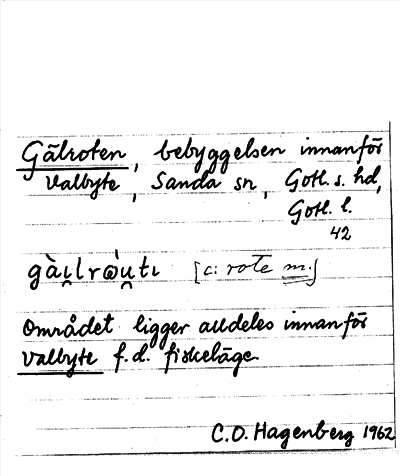 Gälroten, bebyggelsen innanför
Valbyte, Sanda sn, Gotl. s. hd,
Gotl. l.
42
gài̯lrⱺ̀u̯tı [c: rote m.]
Området ligger alldeles innanför
Valbyte f.d. fiskeläge
C.O. Hagenberg 1962